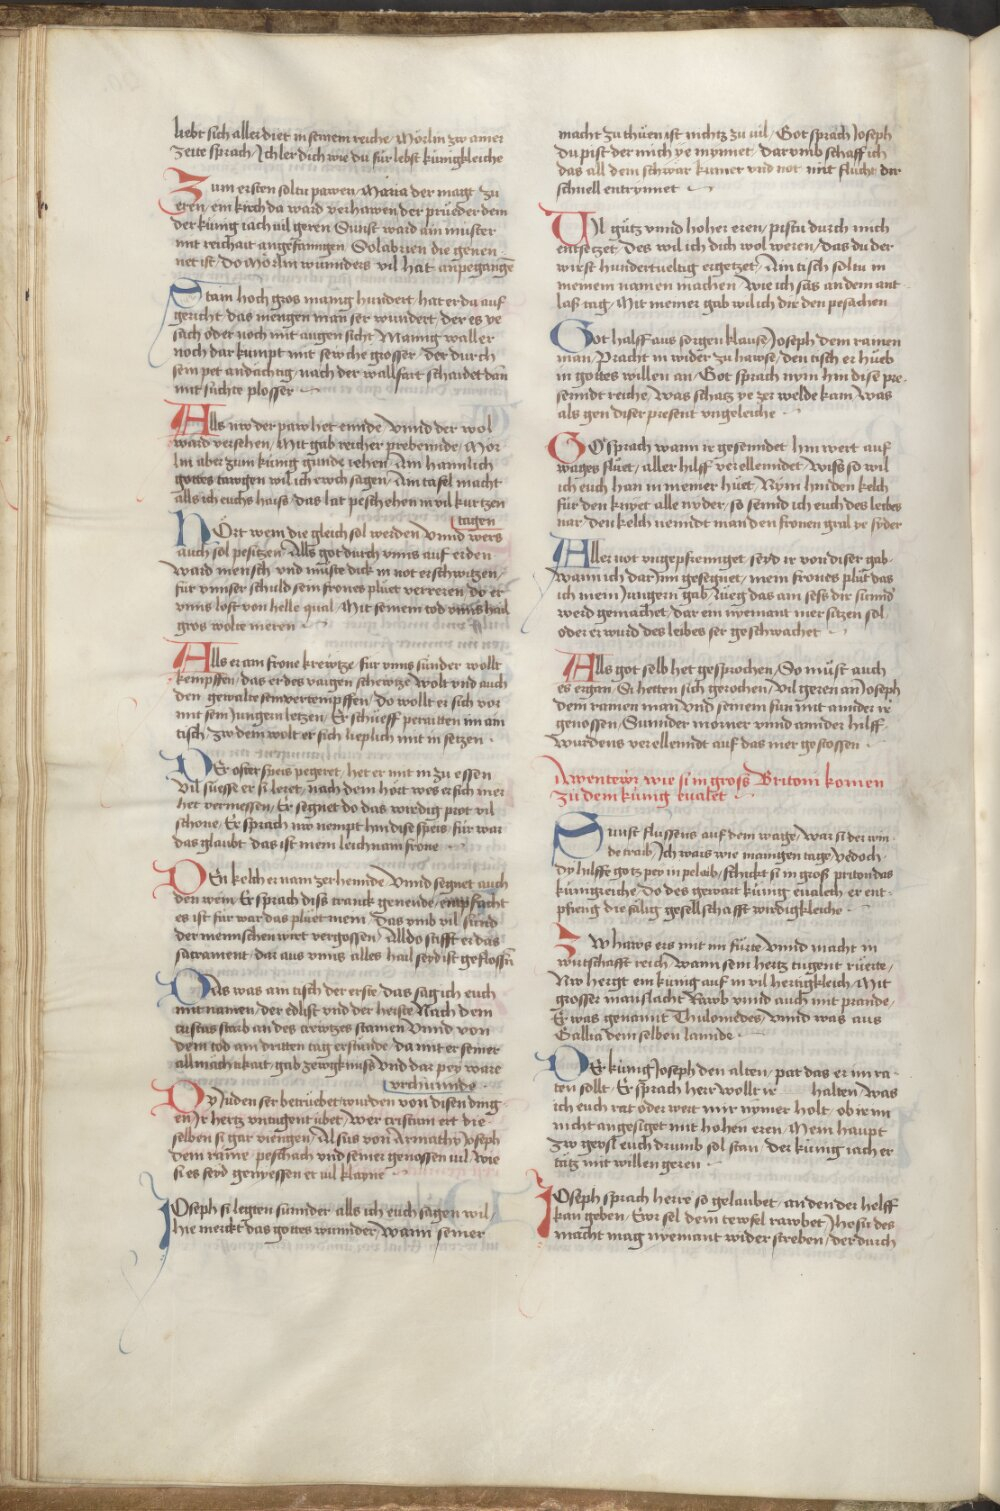 liebt sich aller diet in seinem reiche / Morlin zw ainer
Zeite sprach / Ich ler dich wie du für lebst künigkleiche
Zum ersten soltu pawen / Maria der magt zu
eren / ein kirch da ward verhawen der prüeder dein
der künig iach vil geren Sunst ward ain münster
mit reichait angefanngen Solabrien die genen
net ist / do Morlin wunnders vil hat anpegangen
Stain hoch gros manig hundert / hat er da auf
gericht / das mengen man ser wundert / der es ye
sach oder noch mit augen sicht Manig waller
noch dar kumpt mit sewche grosser / der durch
sein pet andächtig / nach der wallfart schaidet dan
mit süchte plosser
Alls nw der paw het ennde / vnnd der wol
ward versehen / Mit gab reicher prebennde / Mor
lin aber zum künig gunde iehen / Ain hainlich
gottes tawgen wil ich ewch sagen / Ain tafel macht
alls ich euchs haiss / das lat peschehen in vil kurtzen
tagen
Hört wem die gleich sol werden / Vnnd wers
auch sol pesitzen / Alls got durch vnns auf erden
ward mensch / vnd müste dick in not erschwitzen /
für vnnser schuld sein frones plüet verreren / do er
vnns lost von helle qual / Mit seinem tod vnns hail
gros wolte meren
Alls er am frone krewtze / für vnns sünder wollt
kempffen / das er des vargen schewtze / Wolt vnd auch
den gewalte sein vertempffen / do wollt er sich vor
mit sein Jungern letzen / Er schueff peraitten im ain
tisch / zw dem wolt er sich lieplich mit in setzen
Der oster speis pegeret / het er mit in zu essen
Vil süesse er si leret / nach dem hort wes er sich mer
het vermessen / Er segnet do das wirdig prot vil
schone / Er sprach nw nempt hin dise speis / für war
das glaubt das ist mein leichnam frone
Den kelch er nam zer hennde / Vnnd segnet auch
den wein / Er sprach diss tranck genende / empfacht
es ist für war das plüet mein / Das vmb vil sünd
der mennschen wirt vergossen / Alldo stifft er das
sacrament / dar aus vnns alles hail seyd ist geflossn
Das was am tisch der erste / das sag ich euch
mit namen / der edlist vnd der heriste Nach dem
cristus starb an des crewtzes stamen Vnnd von
dem tod am dritten tag erstunde / da mit er seiner
allmächtikait / gab zewgknuss vnd dar pey ware
vrchunnde
Dy Juden ser betrüebet wurden von disen ding
en / Ir hertz vntugent übet / wer cristum ert die
selben si gar viengen / Als us von Armathy Joseph
dem raine / peschach vnd seiner genossen vil / wie
si es seyd genyessen er vil klayne
Joseph si legten sunnder / alls ich euch sagen wil /
hie merckt das gottes wunnder / wann seiner
macht zu thüen ist nichtz zu vil / Got sprach Joseph
du pist der mich ye mynnet / dar vmb schaff ich
das all dein schwär kumer vnd not / mit flucht dir
schnell entrynnet
Vil gütz vnnd hoher eren / pistu durch mich
entsetzet / Des wil ich dich wol weren / das du der
wirst hundertueltig ergetzet / Ain tisch soltu in
meinem namen machen / Wie ich sas an dem ant
lass tag / Mit meiner gab wil ich dir den pesachen
Got halff aus sorgen klause / Joseph dem rainen
man / Pracht in wider zu hawse / den tisch er hueb
in gottes willen an / Got sprach nym hin dise pre
senndt reiche / was schatz ye zer welde kam / Was
als gen diser present vngeleiche
Got sprach wann ir gesenndet / hin wert auf
wages flüet / aller hilff verellenndet / Wiss so wil
ich euch han in meiner hüet / Nym hin den kelch
für den kniyet alle nyder / so sennd ich euch des leibes
nar / den kelch nenndt man den fronen gral ye syder
Aller not vngepfrenniget / seyd ir von diser gab
Wann ich dar Inn gesegnet / mein frones plüt das
ich mein Jungern gab / Lüeg das ain sess dir sunnd
werd gemachet / dar ein nyemant mer sitzen sol
oder er wurd des leibes ser geschwachet
Alls got selb het gesprochen / So müst auch
es ergan / Si hetten sich gerochen / Vil geren an Joseph
dem rainen man / Vnd seinem sun mit annder ir
genossen / Sunnder morner vnnd annder hilff
wurdens verellenndt auf das mer gestossen
Awentewr wie si in gross Britoni komen
zu dem künig eualet
Sunst flussens auf dem wage / war si der win
de traib / Ich wais wie manigen tage / Yedoch
dy hilffe gotz pey in peleib / schickt si in gross pritonias
künigreiche / do des gewart künig eualech er ent
pfieng die sälig gesellschafft wirdigkleiche
Zw haws ers mit im fürte / Vnnd macht in
wirtschafft reich / wann sein hertz tugent rüerte /
Nw hergt ein künig auf in vil hertigkleich / Mit
grosser manslacht / Rawb vnnd auch mit prande /
Er was genannt Thulomedes / vnnd was aus
Gallia dem selben lannde
Der künig Joseph den alten / pat das er im ra
ten sollt / Er sprach herr wollt ir halten / was
ich euch rat oder wert mir nymer holt / ob ir im
nicht angesiget mit hohen eren / Mein haupt
zw geysl euch drumb sol stan / der künig iach er
tätz mit willen geren
Joseph sprach herre so gelaubet / an den der helff
kan geben / Ewr sel dem tewfel rawbet / Jhesus des
macht mag nyemant wider streben / der durch